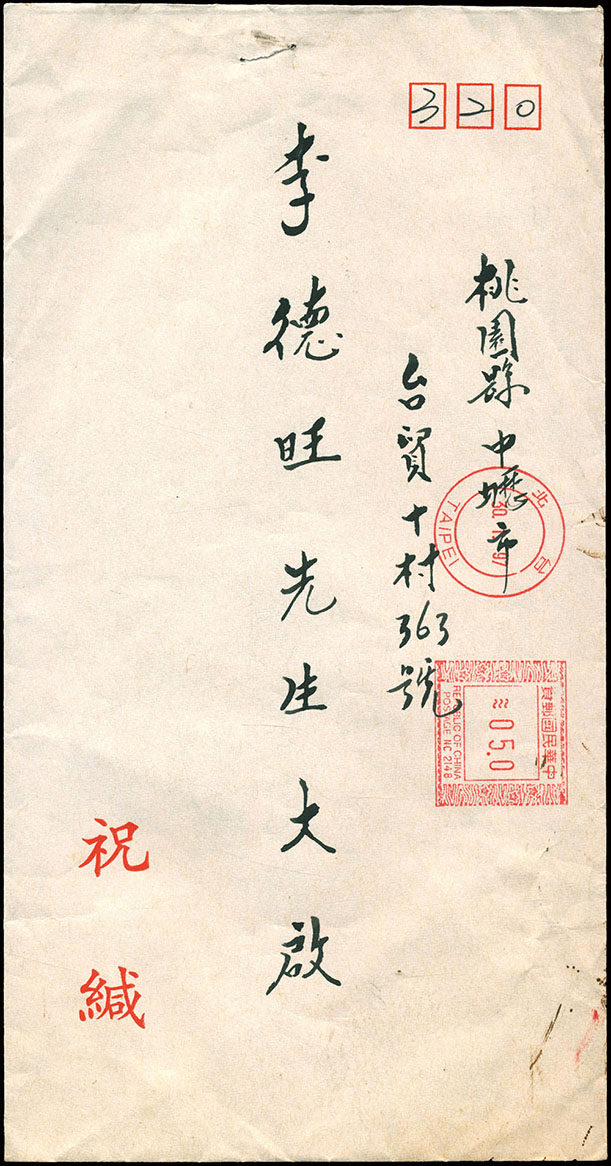 320
桃園縣中壢市
台貿十村363號
李德旺先生大啟
祝緘
台北
TAIPEI
中華民國郵資
05.0
REPUBLIC OF CHINA
POSTAGE NC 2148